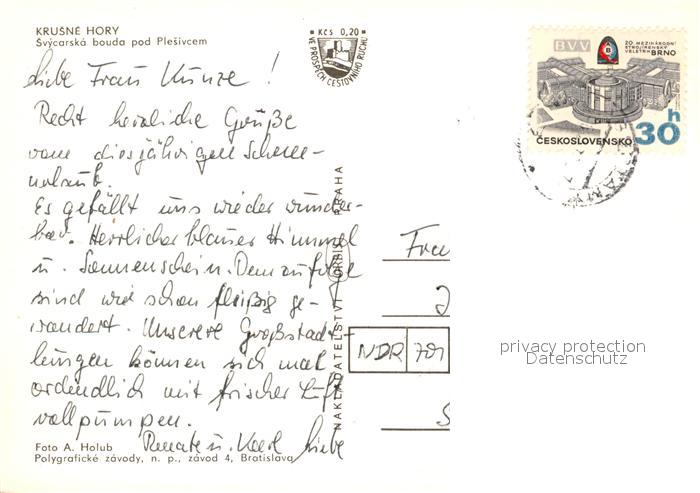 KRUSNÉ HORY
Švýcarská bouda pod Plešivcem
Kčs 0,20
VE PROSPĚCH CESTOVNÍHO RUCHU
BVV
20. MEZINÁRODNÍ
STROJÍRENSKÝ
VELETRH BRNO
ČESKOSLOVENSKO
30h
Liebe Frau Kunze!
Recht herzliche Grüße
vom diesjährigen
urlaub.
Es gefällt uns wieder wunder-
bar. Herrlicher blauer Himmel
u. Sonnenschein. Demzufolge
sind wir schon fleißig ge-
wandert. Unsere Großstadt-
lungen können sich mal
ordendlich mit frischer Luft
vollpumpen.
Renate u. Karl
NAKLADATELSTVÍ ORBIS PRAHA
Frau
NDR 701
privacy protection
Datenschutz
Foto A. Holub
Polygrafické závody, n. p., závod 4, Bratislava